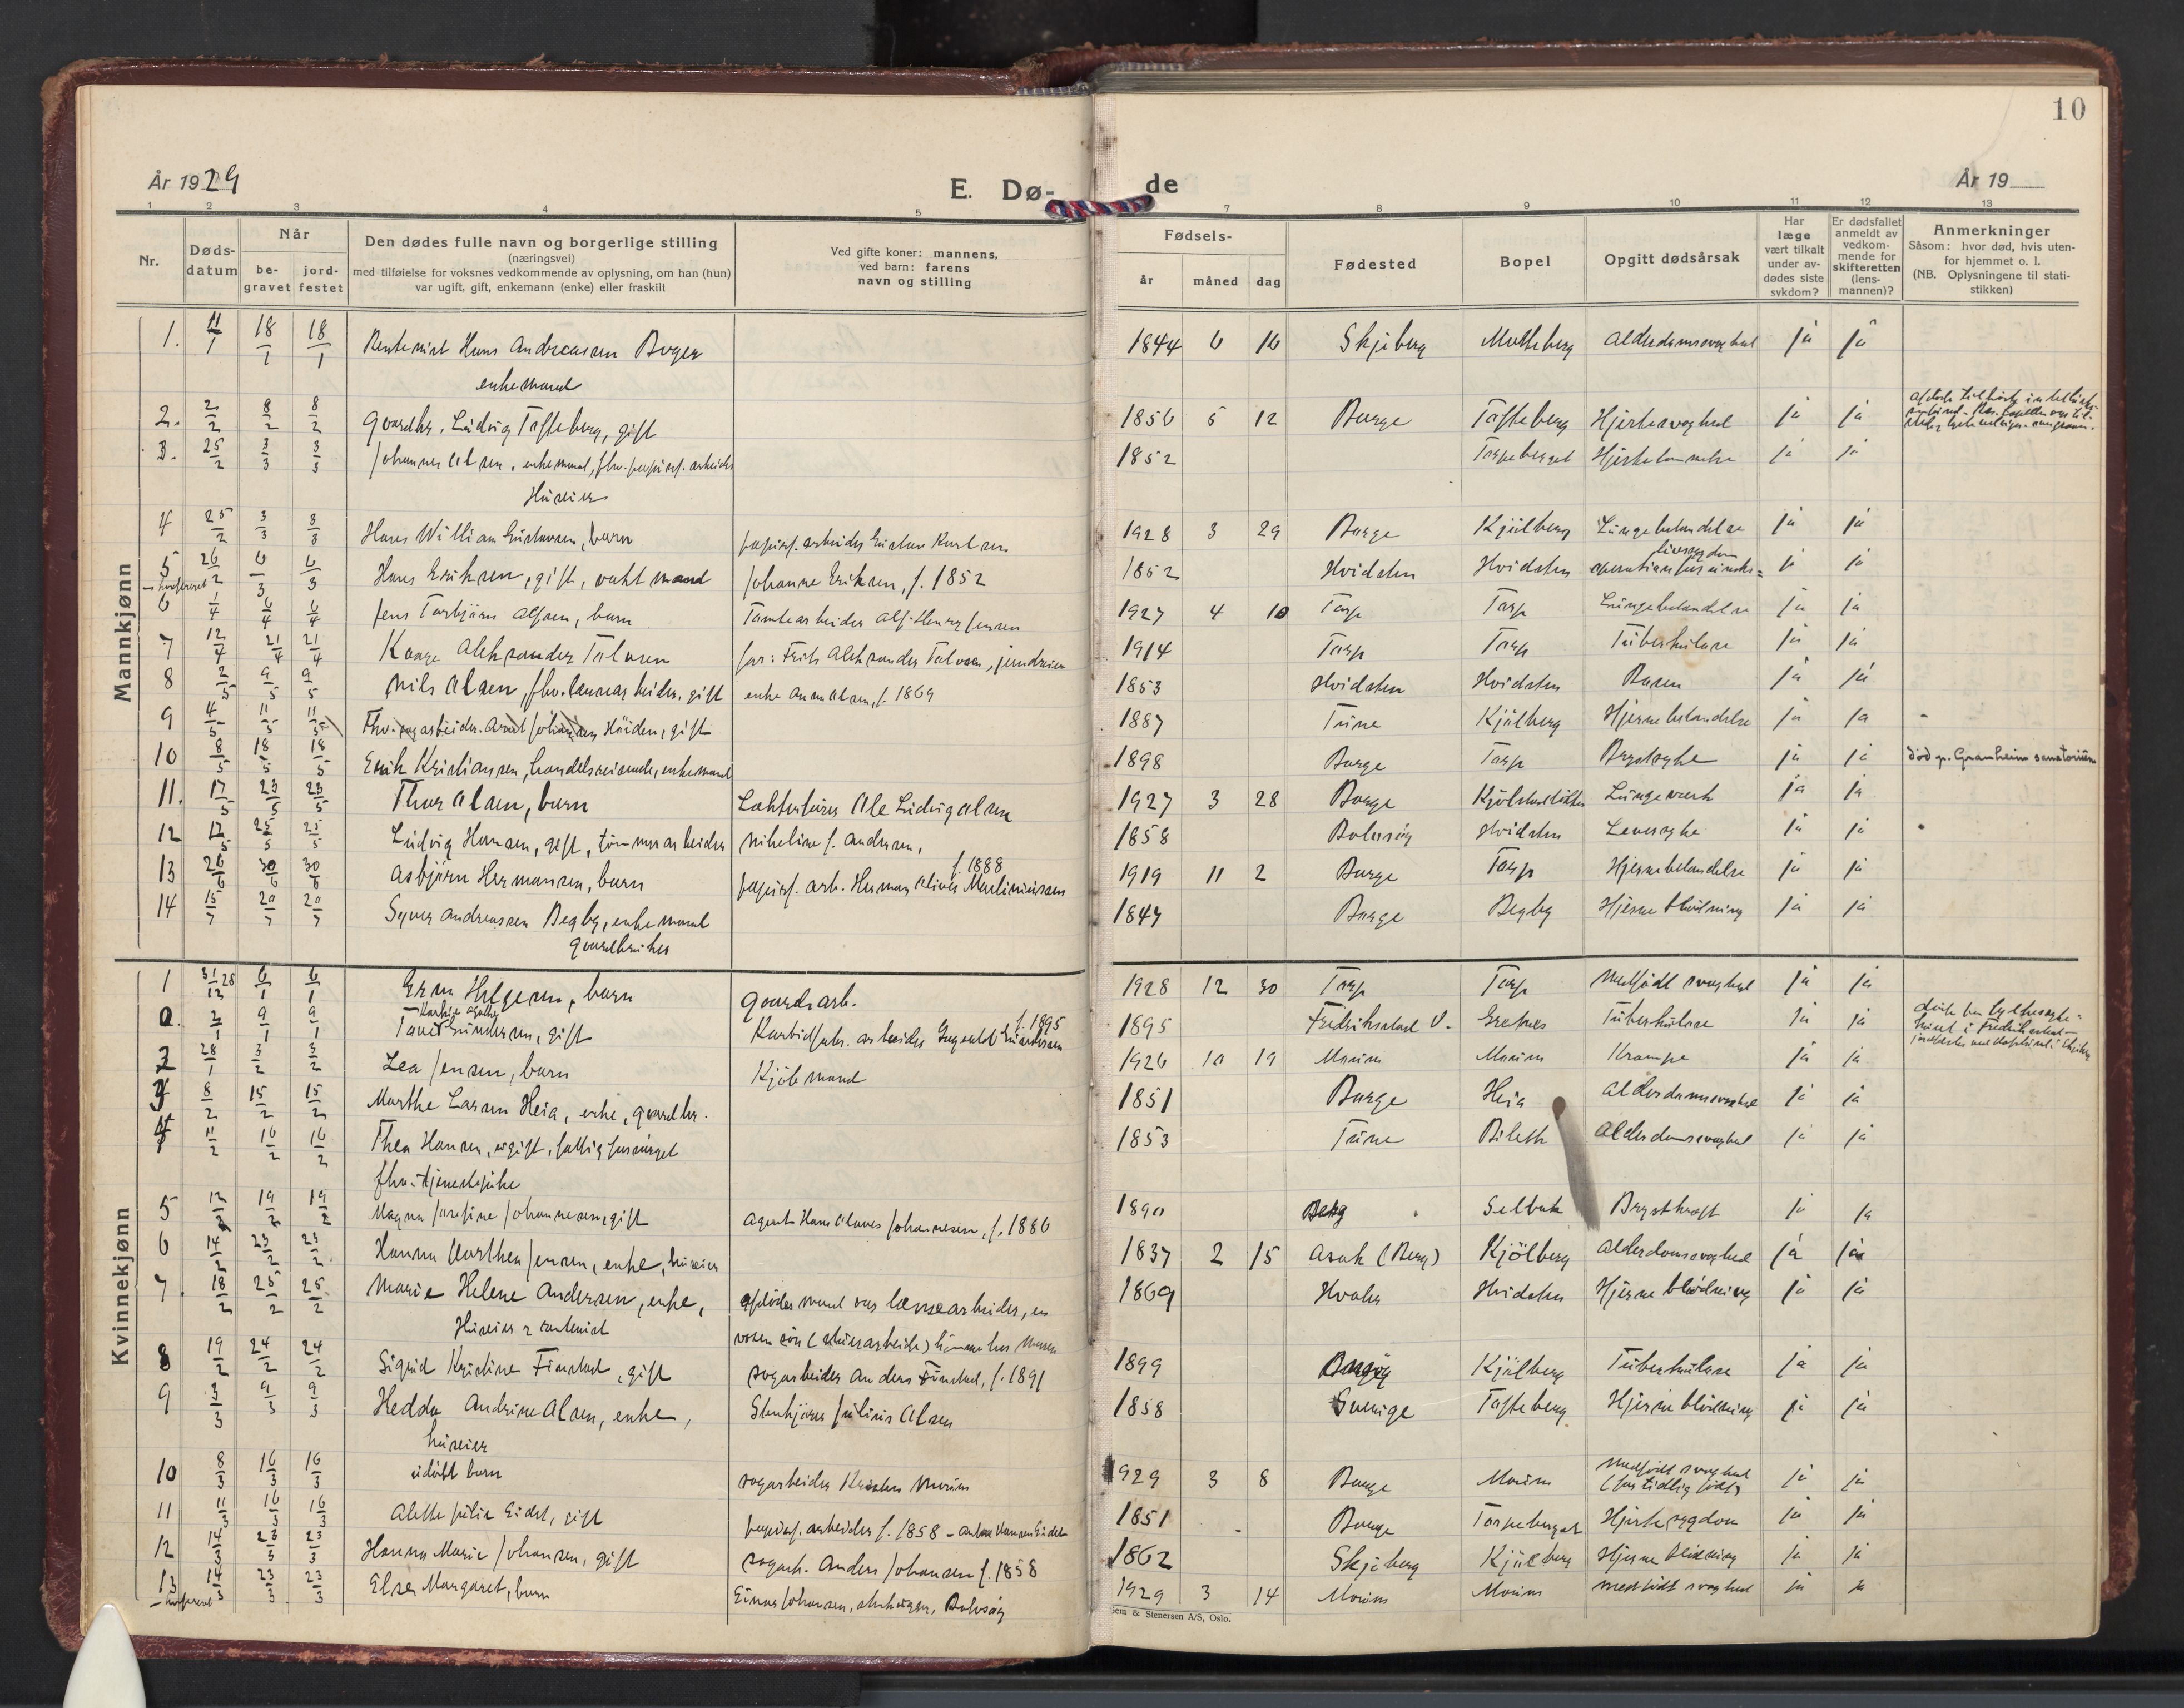 10
År 1929
E. Dø-
de
År 19
1 2 3 4 5 7 8 9 10 11 12 13
Nr.
Døds-
datum
Når
be-
gravet
jord-
festet
Den dødes fulle navn og borgerlige stilling
(næringsvei)
med tilføielse for voksnes vedkommende av oplysning, om han (hun)
var ugift, gift, enkemann (enke) eller fraskilt
Ved gifte koner: mannens,
ved barn: farens
navn og stilling
Fødsels-
år måned dag
Fødested
Bopel
Opgitt dødsårsak
Har
læge
vært tilkalt
under av-
dødes siste
sykdom?
Er dødsfallet
anmeldt av
vedkom-
mende for
skifteretten
(lens-
mannen)?
Anmerkninger
Såsom: hvor død, hvis uten-
for hjemmet o. l.
(NB. Oplysningene til stati-
stikken)
Mannkjønn
1. 11/1 18/1 18/1 Rentenist Hans Andreassen Borgen 1844 6 16 Skjeberg Alderdomssvaghed ja ja
enkemand
2. 2/2 8/2 8/2 Gaardbr. Ludvig Tofteberg, gift 1856 5 12 Borge Tofteberg Hjertesvaghed ja ja
3. 25/2 3/3 3/3 Johannes Olsen, enkemand, fhv. papirf. arbeider 1852 Torpeberget Hjertelammelse ja ja
Huseier
4 25/2 3/3 3/3 Hans William Gustavsen, barn papirf. arbeider Gustav Karlsen 1928 3 29 Borge Kjølberg Lungebetændelse ja ja
5 26/2 6/3 6/3 Hans Eriksen, gift, vaktmand Johanne Eriksen, f. 1852 1852 Hvidsten Hvidsten operation for ja ja
6 1/4 6/4 6/4 Jens Torbjørn Alfsen, barn Tomtearbeider Alf Henry Jensen 1927 4 10 Torp Torp Lungebetændelse ja ja
7 12/4 21/4 21/4 Kaare Aleksander Tolvsen far: Frits Aleksander Tolvsen, jerndreier 1914 Torp Torp Tuberkulose ja ja
8 2/5 9/5 9/5 Nils Olsen, fhv. lensearbeider, gift enke Anna Olsen, f. 1869 1853 Hvidsten Hvidsten Rosen ja ja
9 4/5 11/5 11/5 Fhv. sagarbeider Arnt Johansen Høiden, gift 1887 Tune Kjølberg Hjernebetændelse ja ja
10 8/5 18/5 18/5 Erik Kristiansen, handelsreisende, enkemand 1898 Borge Torp Brystsyke ja ja død p. Granheim sanatorium
11. 17/5 23/5 23/5 Thor Olsen, barn Ole Ludvig Olsen 1927 3 28 Borge ja ja
12 17/5 25/5 25/5 Ludvig Hansen, gift, tømmerarbeider Nikoline f. Andersen, 1858 Hvidsten Leversyke ja ja
f. 1888
13 26/6 30/6 30/6 Asbjørn Hermansen, barn papirf. arb. Herman Oliver Martiniussen 1919 11 2 Borge Torp Hjernebetændelse ja ja
14 15/7 20/7 20/7 Syver Andreassen Begby, enkemand 1847 Borge Begby Hjerneblødning ja ja
gaardbruker
Kvinnekjønn
1 31/12 28 6/1 6/1 Erna Helgesen, barn gaardsarb. 1928 12 30 Torp Torp Medfødt svaghed ja ja
2/1 9/1 9/1 Gundersen, gift Karbidfabr. arbeider Gundersen f. 1895 1895 Fredrikstad V. Tuberkulose ja ja
2 28/1 3/2 3/2 Lea Jensen, barn Kjøbmand 1926 10 19 Moum Moum Krampe ja ja
3 8/2 15/2 15/2 Marthe Larsen Heia, enke, gaardbr. 1851 Borge Heia Alderdomssvaghed ja ja
4 11/2 16/2 16/2 Thea Hansen, ugift, fattigforsørget 1853 Tune Alderdomssvaghed ja ja
fhv. tjenestepike
5 12/2 19/2 19/2 Magna Josefine Johannesen, gift Agent Hans Olaves Johannesen, f. 1886 1890 Berg Selbak Brystkræft ja ja
6 14/2 23/2 23/2 Hanna Marthea Jensen, enke, huseier 1837 2 15 Asak (Berg) Kjølberg Alderdomssvaghed ja ja
7 18/2 25/2 25/2 Marie Helene Andersen, enke, afdødes mand var lensearbeider, en 1869 Hvaler Hvidsten Hjerneblødning ja ja
Huseier & rentenist voksen søn hjemme hos moren
8 19/2 24/2 24/2 Sigrid Kristine Finstad, gift sagarbeider Anders Finstad, f. 1891 1899 Kjølberg Tuberkulose ja ja
9 3/3 9/3 9/3 Hedda Andrine Olsen, enke, Stenhugger Julius Olsen 1858 Sverige Tofteberg Hjerneblødning ja ja
huseier
10 8/3 16/3 16/3 udøbt barn sagarbeider Moum 1929 3 8 Borge Moum Medfødt svaghed ja ja
(for tidlig født)
11 11/3 16/3 16/3 Alette Julie Eidet, gift papirf. arbeider f. 1858 - Anton Hansen Eidet 1851 Borge Torpeberget Hjertesygdom ja ja
12 14/3 23/3 23/3 Hanna Marie Johansen, gift sagarb. Anders Johansen f. 1858 1862 Skjeberg Kjølberg Hjerneblødning ja ja
13 14/3 23/3 23/3 Elsa Margaret, barn Einar Johansen, 1929 3 14 Moum Moum medfødt svaghed ja ja
& Stenersen A/S, Oslo.